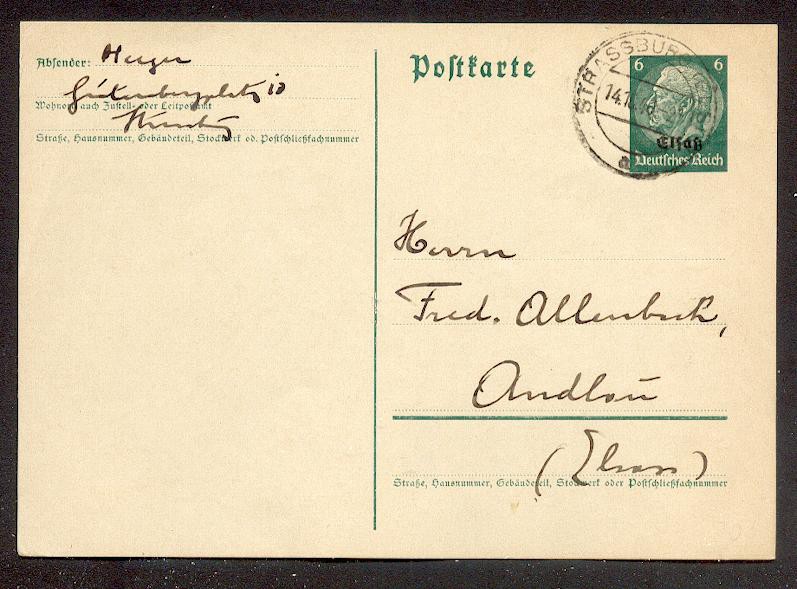 Absender: Meyer
Gutenbergplatz 10
Wohnort, auch Zustell- oder Leitpostamt
Straße, Hausnummer, Gebäudeteil, Stockwerk od. Postschließfachnummer
Postkarte
STRASSBURG
14.10.
a
6 6
Elsaß
Deutsches Reich
Herrn
Fred. Allenbach,
Andlau
(Elsass)
Straße, Hausnummer, Gebäudeteil, Stockwerk oder Postschließfachnummer